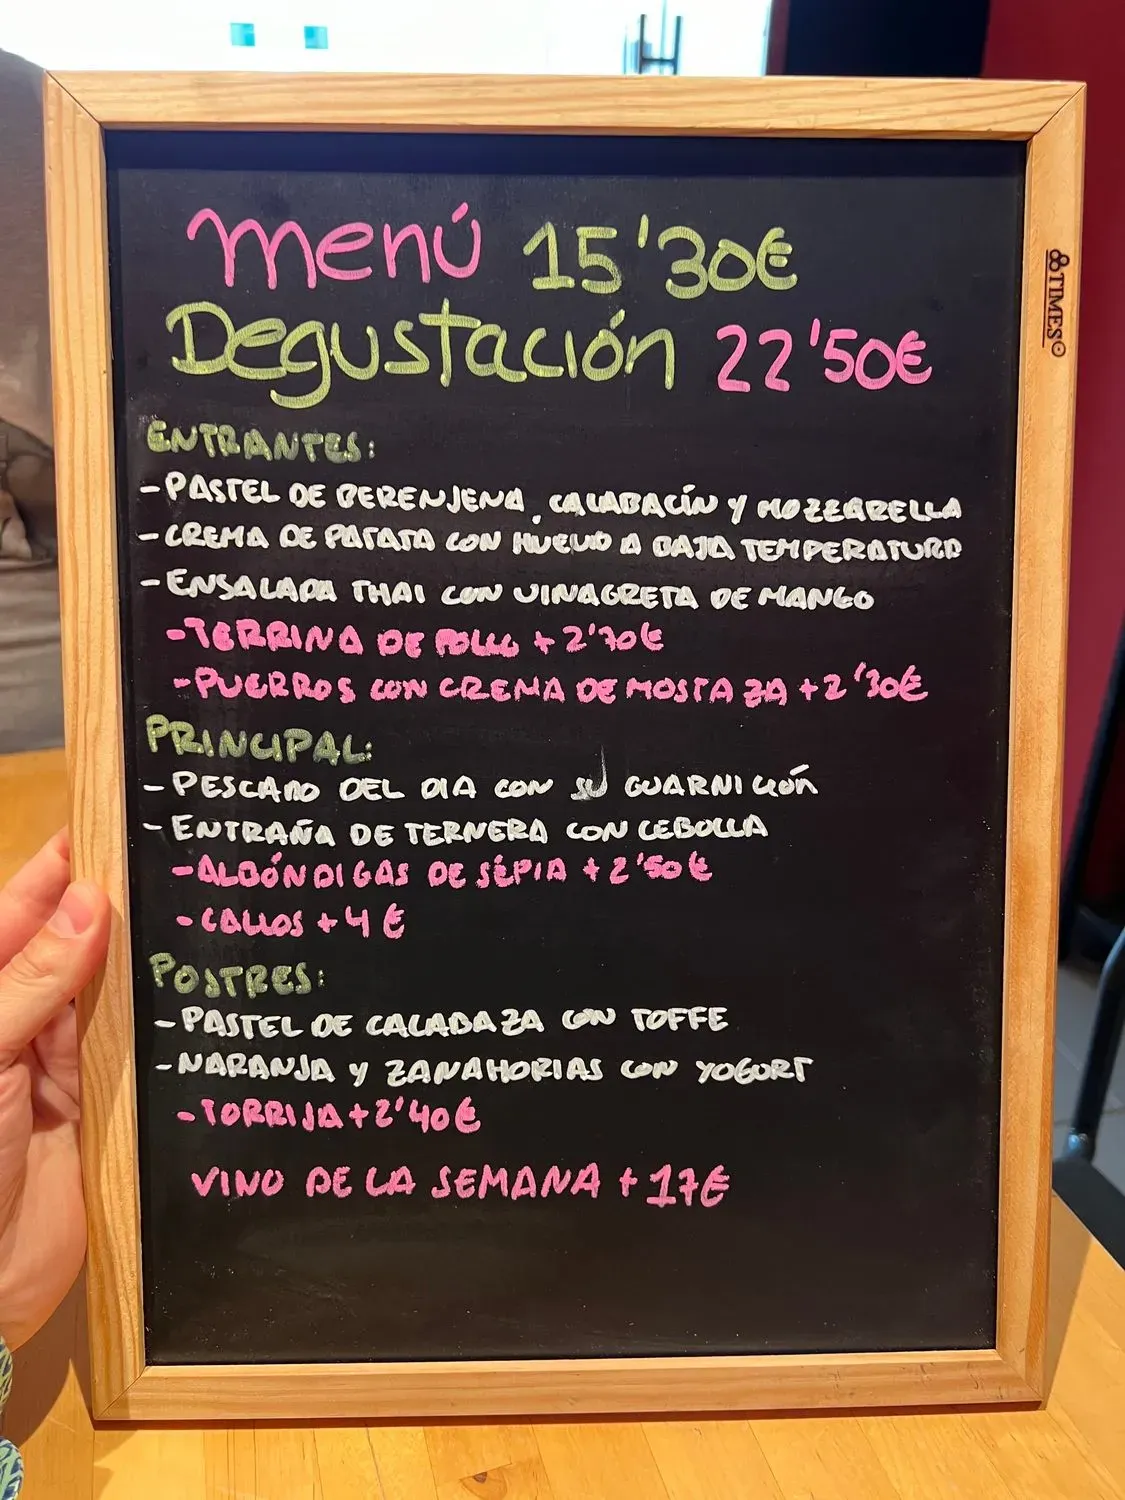 menú 15'30€
Degustación 22'50€
ENTRANTES:
- PASTEL DE BERENJENA, CALABACÍN Y MOZZARELLA
- CREMA DE PATATA CON HUEVO A BAJA TEMPERATURA
- ENSALADA THAI CON VINAGRETA DE MANGO
- TERRINA DE POLLO + 2'70€
- PUERROS CON CREMA DE MOSTAZA + 2'30€
PRINCIPAL:
- PESCADO DEL DIA CON SU GUARNICIÓN
- ENTRAÑA DE TERNERA CON CEBOLLA
- ALBÓNDIGAS DE SÉPIA + 2'50€
- CALLOS + 4€
POSTRES:
- PASTEL DE CALABAZA CON TOFFE
- NARANJA Y ZANAHORIAS CON YOGURT
- TORRIJA + 2'40€
VINO DE LA SEMANA + 17€
TIMES